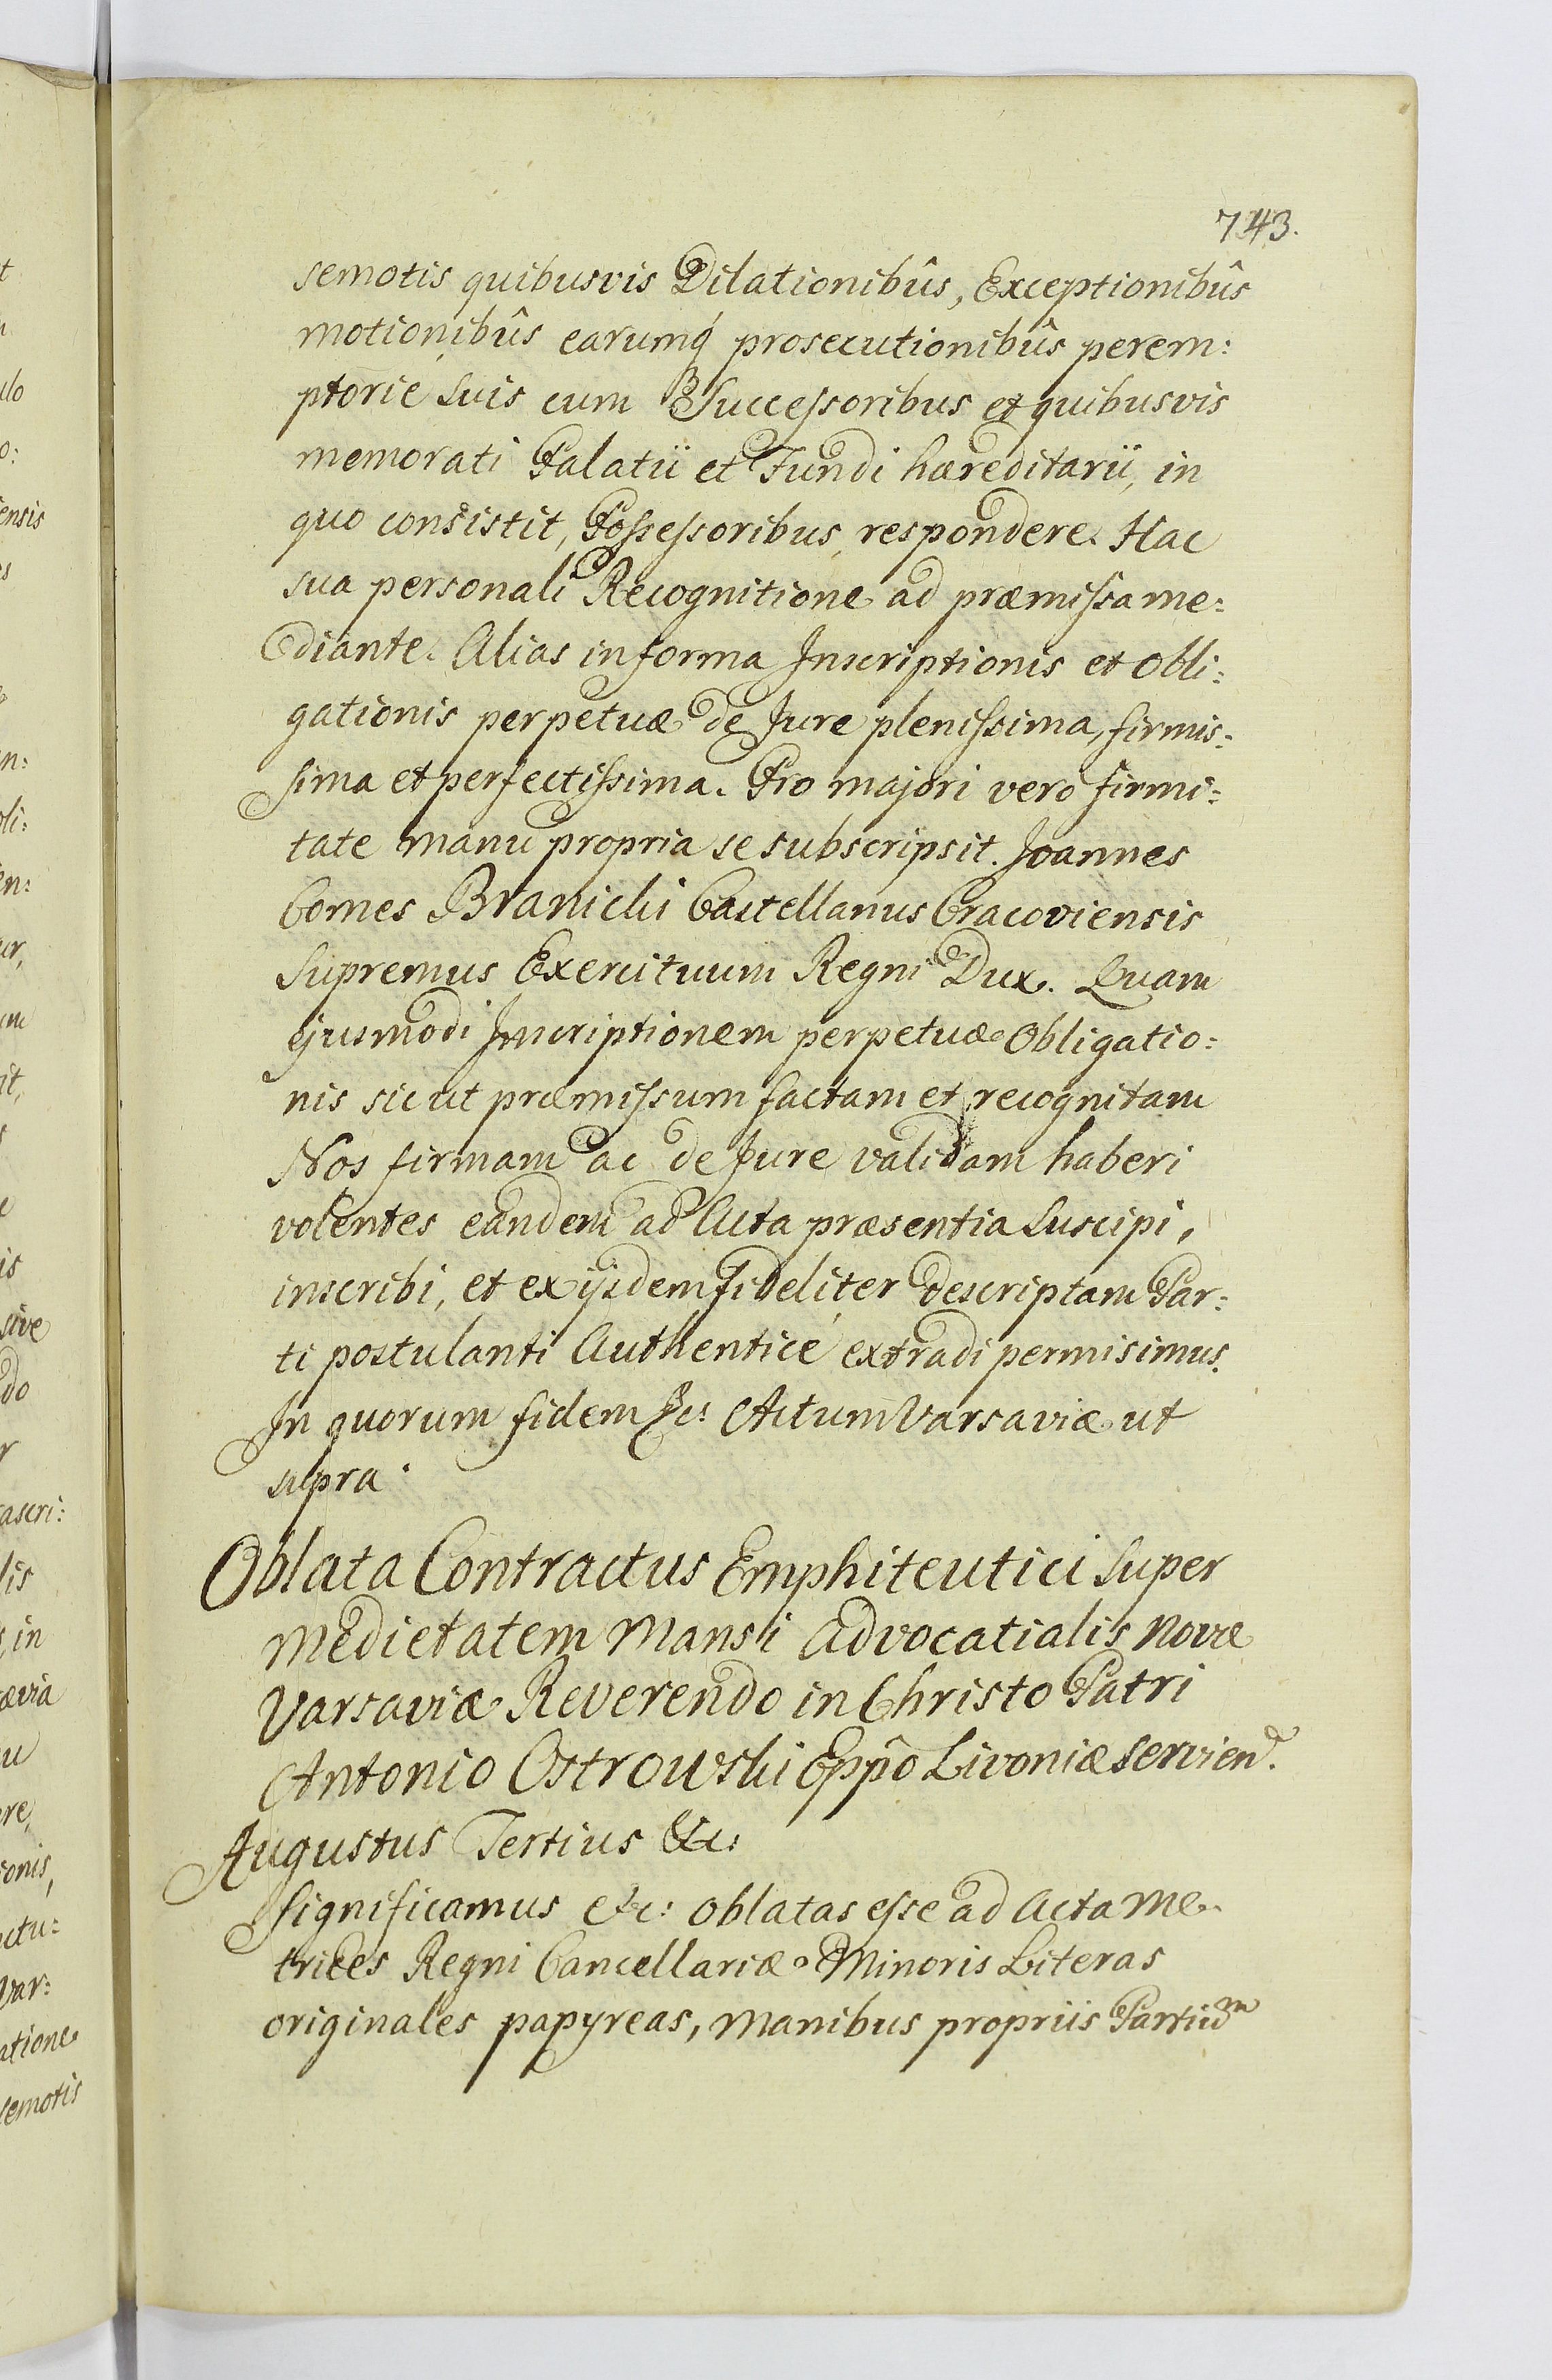 743.
semotis quibusvis Dilationibûs, Exceptionibûs
motionibûs earumq́ prosecutionibûs perem:
ptorie suis cum Successoribus et quibusvis
memorati Palatii et Fundi hæreditarii, in
quo consistit, Possessoribus respondere. Hac
sua personali Recognitione ad præmissa me:
diante. Alias in forma Inscriptionis et Obli:
gationis perpetuæ de Jure plenissima, firmis:
sima et perfectissima. Pro majori vero firmi:
tate manu propria se subscripsit. Joannes
Comes Branicki Castellanus Cracoviensis
Supremus Exercituum Regni Dux. Quam
ejusmodi Inscriptionem perpetuæ Obligatio:
nis sic ut præmissum factam et recognitam
Nos firmam ac de Jure validam haberi
volentes eandem ad Acta præsentia suscipi,
inscribi, et ex ijsdem fideliter descriptam Par:
ti postulanti Authenticé extradi permisimus.
In quorum fidem &c: Actum Varsaviæ ut
supra.
Oblata Contractus Emphiteutici super
medietatem Mansi Advocatialis Novæ
Varsaviæ Reverendo in Christo Patri
Antonio Ostrowski Eppo Livoniæ servien.
Augustus Tertius &c:
Significamus &c: oblatas esse ad Acta Me
trices Regni Cancellariæ Minoris Literas
originales papyreas, manibus propriis Partium